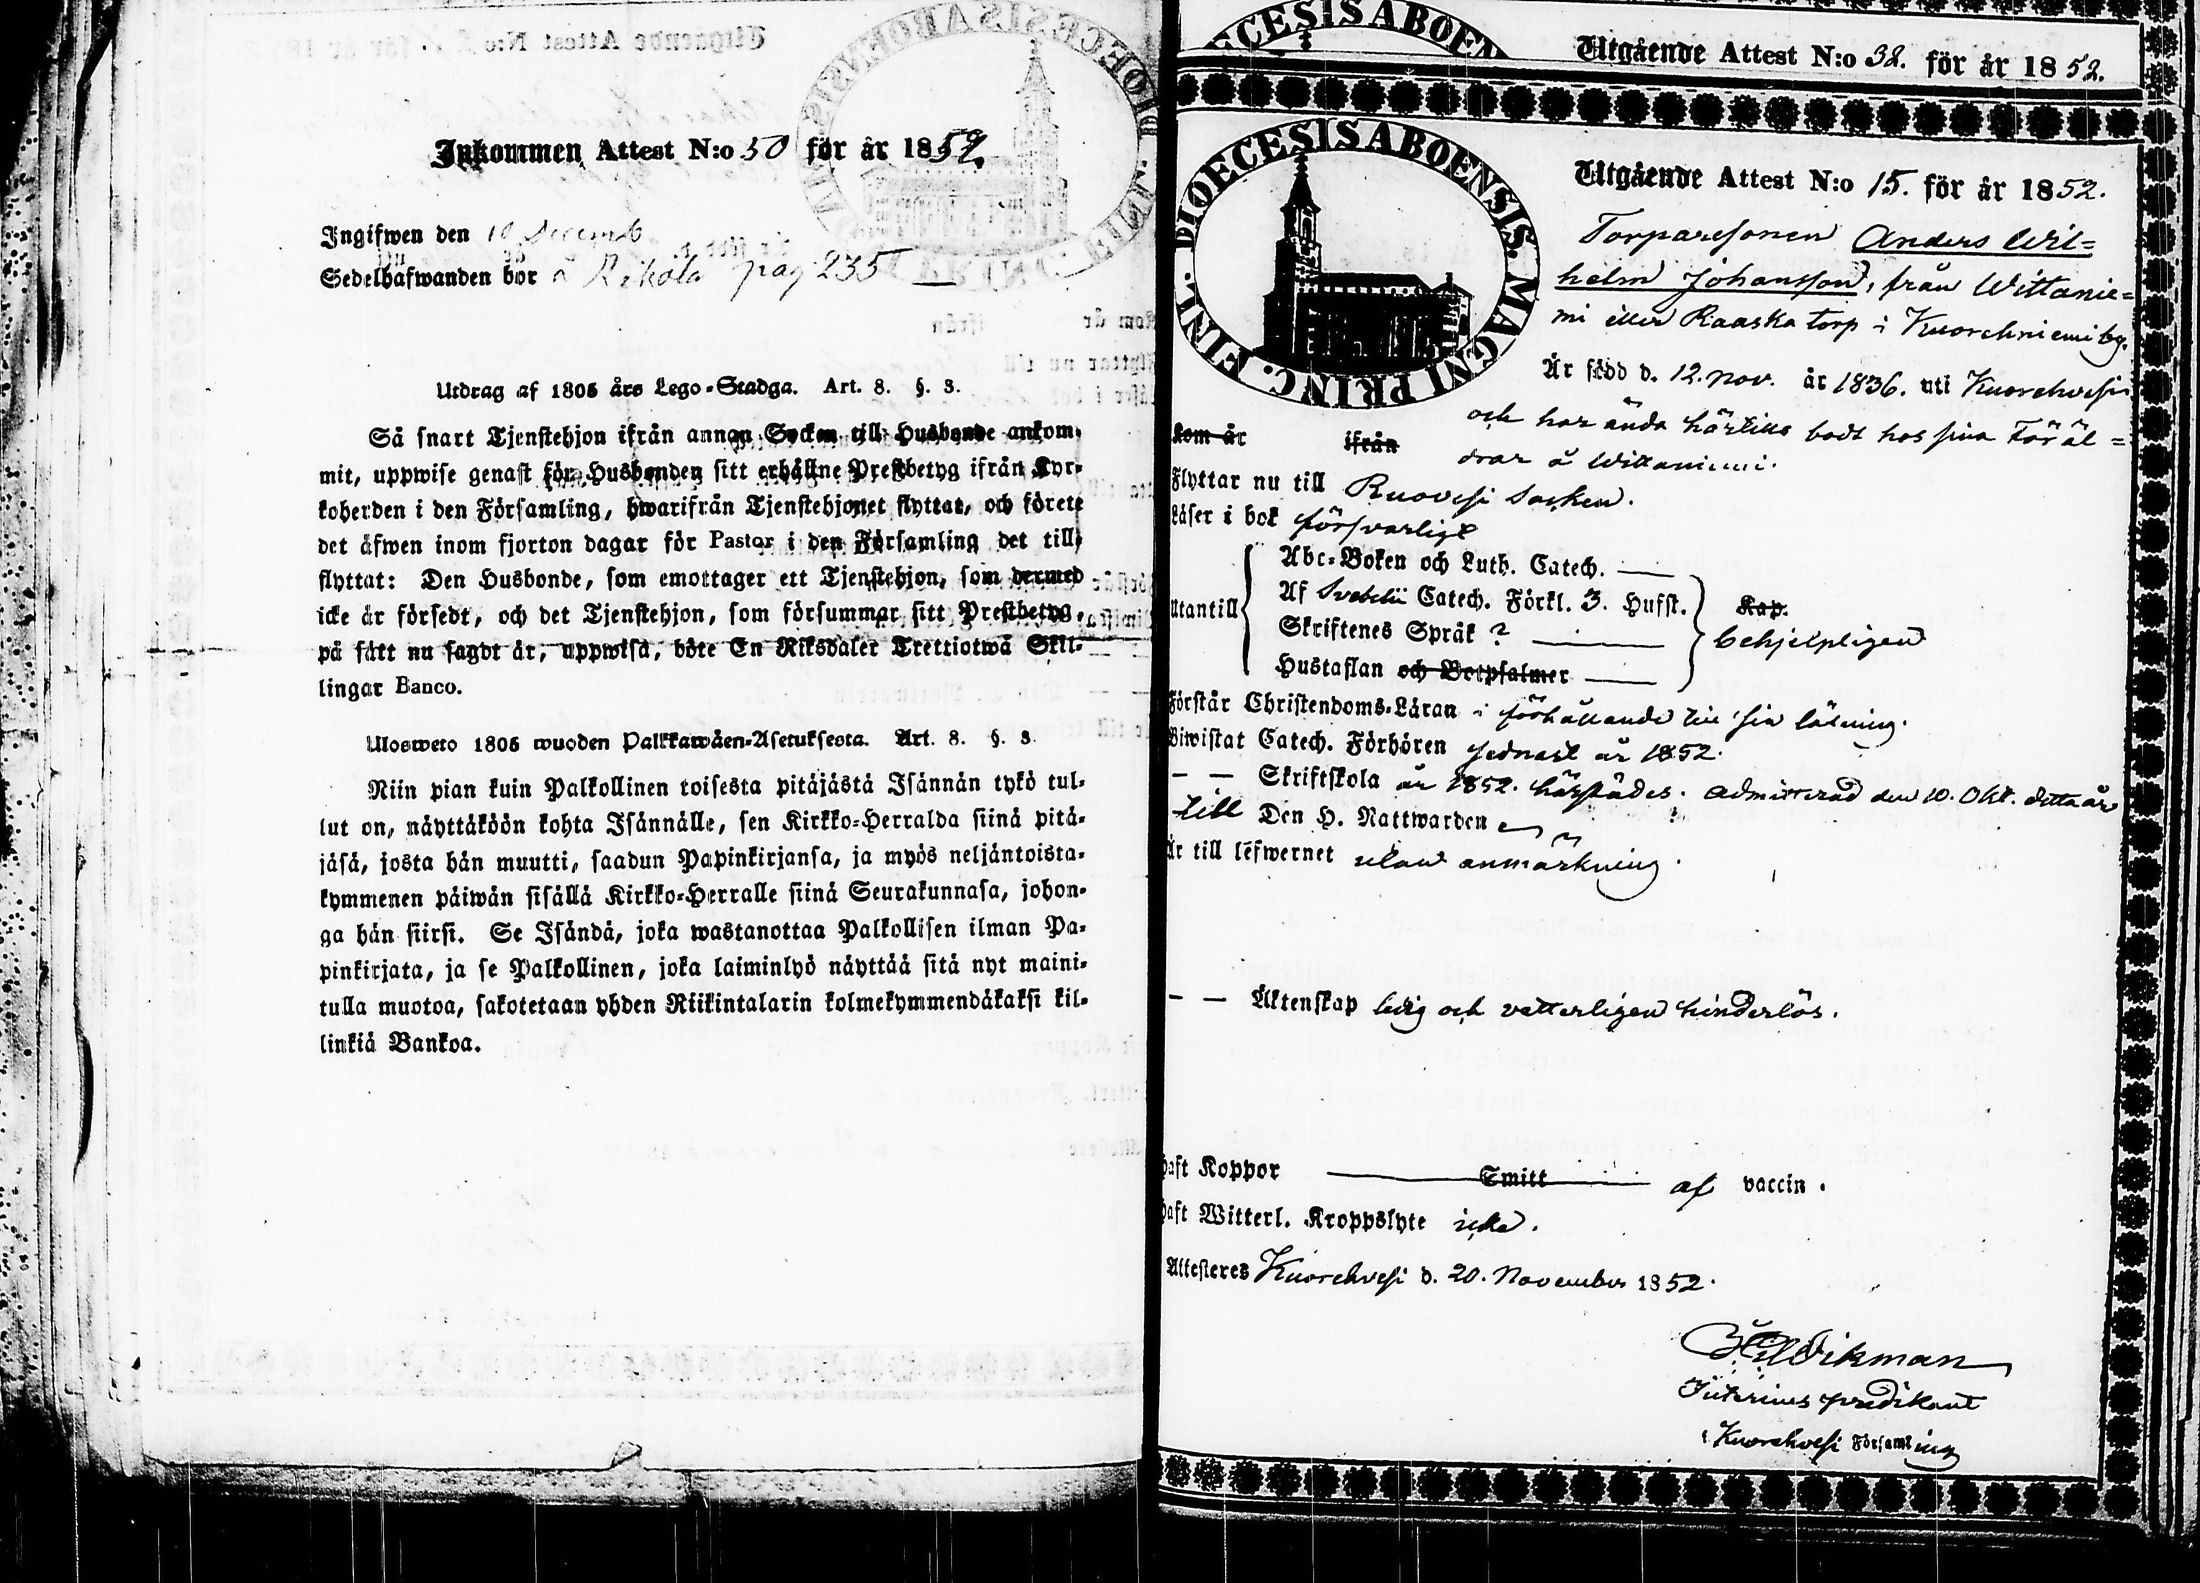 Inkommen Attest N:o 50 för år 1852.
Ingifwen den 10 Decemb
Sedelhafwanden bor å Rekola pag 235
Utdrag af 1805 års Lego-Stadga. Art. 8. §. 3.
Så snart Tjenstehjon ifrån annan Socken till Husbonde ankom-
mit, uppwise genast för Husbonden sitt erhållne Prestbetyg ifrån Kyr-
koherden i den Församling, hwarifrån Tjenstehjonet flyttat, och förete
det äfwen inom fjorton dagar för Pastor i den Församling det till-
flyttat: Den Husbonde, som emottager ett Tjenstehjon, som dermed
icke är försedt, och det Tjenstehjon, som försummar sitt Prestbetyg,
på sätt nu sagdt är, uppwisa, böte En Riksdaler Trettiotwå Skil-
lingar Banco.
Ulosweto 1805 wuoden Palkkawäen-Asetuksesta. Art. 8. §. 3.
Niin pian kuin Palkollinen toisesta pitäjästä Isännän tykö tul-
lut on, näyttäköön kohta Isännälle, sen Kirkko-Herralda siinä pitä-
jäsä, josta hän muutti, saadun Papinkirjansa, ja myös neljäntoista-
kymmenen päiwän sisällä Kirkko-Herralle siinä Seurakunnasa, johon-
ga hän siirsi. Se Isändä, joka wastanottaa Palkollisen ilman Pa-
pinkirjata, ja se Palkollinen, joka laiminlyö näyttää sitä nyt maini-
tulla muotoa, sakotetaan yhden Riikintalarin kolmekymmendäkaksi kil-
linkiä Bankoa.
Utgående Attest N:o 32. för år 1852.
DIOECESIS ABOENSIS. MAGNI PRINC. FINL.
Utgående Attest N:o 15. för år 1852.
Torparesonen Anders Wil=
helm Johansson, från Wittanie=
mi eller Raaska torp i Kuorehniemi by.
Är född d. 12. Nov. år 1836. uti Kuorehvesi
och har ända härtills bodt hos sina Föräl=
drar å Wittaniemi.
Kom år ifrån
Flyttar nu till Ruovesi Socken.
Läser i bok försvarligt
Utantill
Abc-Boken och Luth. Catech.
Af Svebelii Catech. Förkl. 3. Hufst. Kap.
Skriftenes Språk ? behjelpligen
Hustaflan och Botpsalmer
Förstår Christendoms-Läran i förhållande till sin läsning.
Biwistat Catech. Förhören sednast år 1852.
— — Skriftskola år 1852. härstädes. admitterad den 10. Okt. detta år
till Den H. Nattwarden
Är till lefwernet utan anmärkning.
— — Äktenskap ledig och vetterligen hinderlös.
Haft Koppor Smitt af vaccin.
Haft Witterl. Kroppslyte icke.
Attesteres Kuorehvesi d. 20. November 1852.
Wikman
Interims predikant
i Kuorehvesi Församling